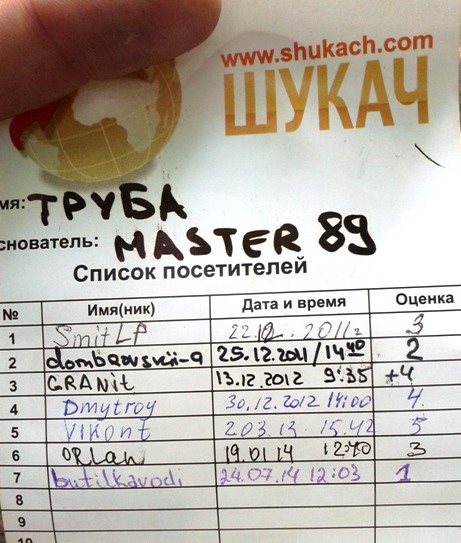 www.shukach.com
ШУКАЧ
мя: ТРУБА
снователь: MASTER 89
Список посетителей
№ Имя(ник) Дата и время Оценка
1 SmitLP 22.12.2011г 3
2 dombrovskii-a 25.12.2011/14:40 2
3 GRANit 13.12.2012 9:35 +4
4 Dmytroy 30.12.2012 14:00 4
5 VIKont 203.13 15.42 5
6 ORLan 19.01.14 12:40 3
7 butilkavodi 24.07.14 12:03 1
8
9
10